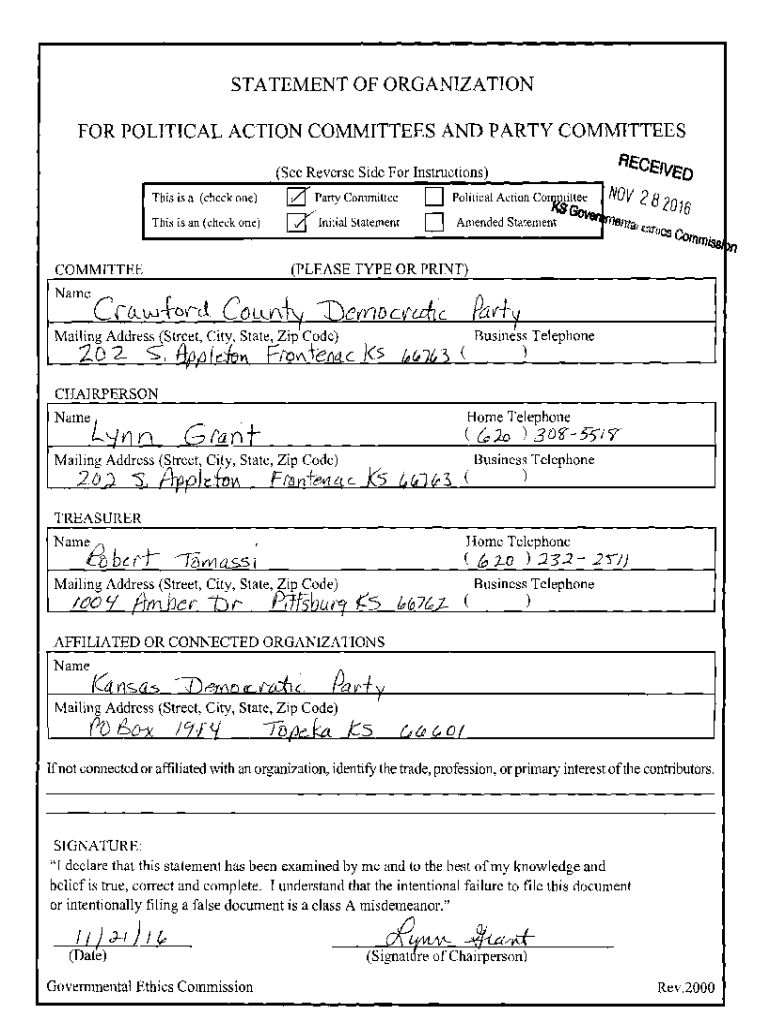 STATEMENT OF ORGANIZATION
FOR POLITICAL ACTION COMMITTEES AND PARTY COMMITTEES
(See Reverse Side For Instructions)
RECEIVED
NOV 28 2016
KS Governmental Ethics Commission
This is a (check one) Party Committee Political Action Committee
This is an (check one) Initial Statement Amended Statement
COMMITTEE (PLEASE TYPE OR PRINT)
Name
Crawford County Democratic Party
Mailing Address (Street, City, State, Zip Code) Business Telephone
202 S. Appleton Frontenac KS 66763 ( )
CHAIRPERSON
Name Home Telephone
Lynn Grant (620) 308-5518
Mailing Address (Street, City, State, Zip Code) Business Telephone
202 S. Appleton Frontenac KS 66763 ( )
TREASURER
Name Home Telephone
Robert Tomassi (620) 232-2511
Mailing Address (Street, City, State, Zip Code) Business Telephone
1004 Amber Dr Pittsburg KS 66762 ( )
AFFILIATED OR CONNECTED ORGANIZATIONS
Name
Kansas Democratic Party
Mailing Address (Street, City, State, Zip Code)
PO Box Topeka KS 66601
If not connected or affiliated with an organization, identify the trade, profession, or primary interest of the contributors.
SIGNATURE:
"I declare that this statement has been examined by me and to the best of my knowledge and
belief is true, correct and complete. I understand that the intentional failure to file this document
or intentionally filing a false document is a class A misdemeanor."
11/21/16 Lynn Grant
(Date) (Signature of Chairperson)
Governmental Ethics Commission Rev.2000